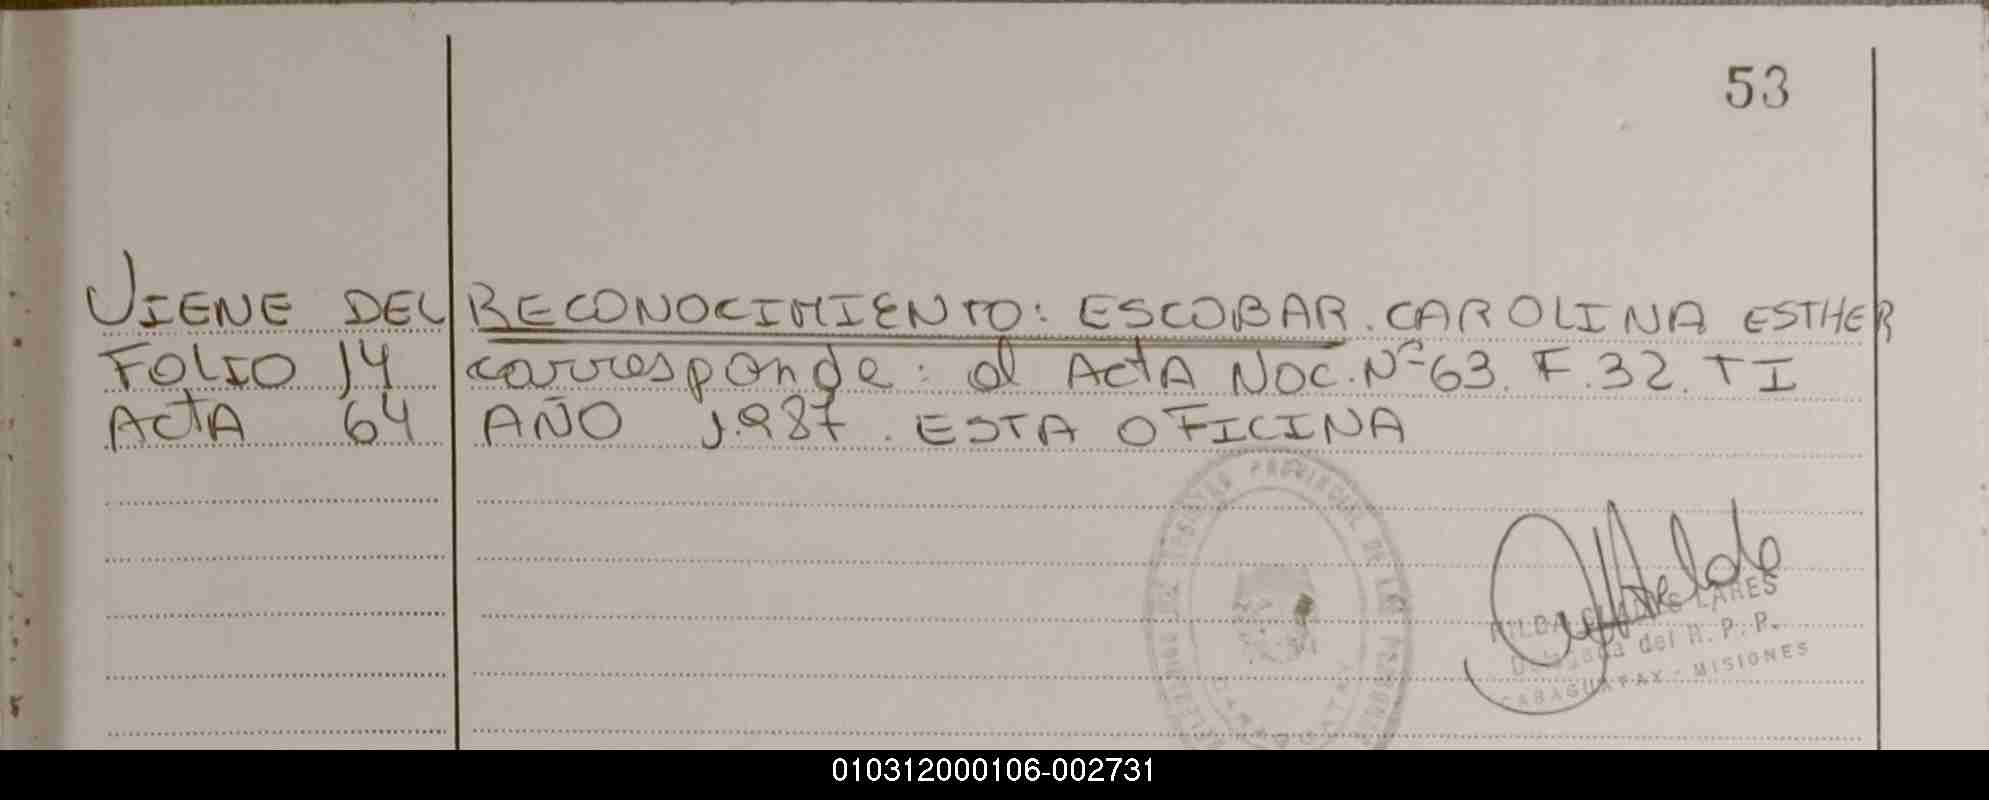 53
VIENE DEL RECONOCIMIENTO: ESCOBAR. CAROLINA ESTHER
FOLIO 14 corresponde: al ActA NOC. Nº 63. F. 32. TI
ActA 64 AÑO 1.987. ESTA OFICINA
PROVINCIAL DE LAS PERSONAS
GLADYS LARES
Delegada del R. P. P.
CARAGUATAY - MISIONES
010312000106-002731